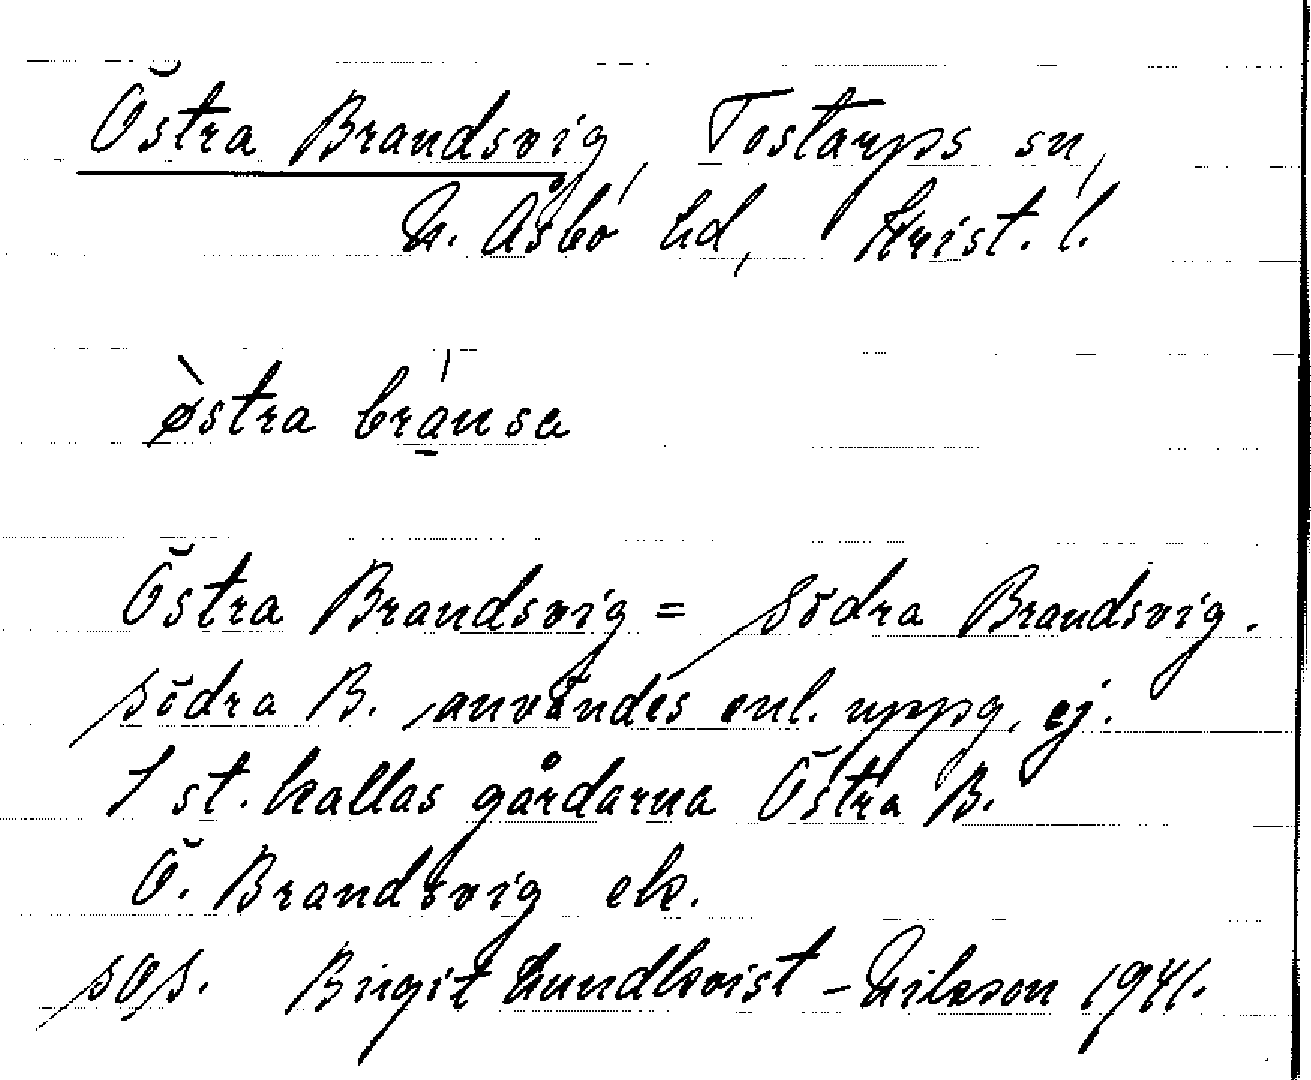 Östra Brandsvig, Tostarps sn,
N. Åsbo hd, Krist. l.
østra bransa
Östra Brandsvig = Södra Brandsvig.
Södra B. användes enl. uppg. ej.
I st. kallas gårdarna Östra B.
Ö. Brandsvig ek.
SOS. Birgit Lundkvist-Nilsson 1941.